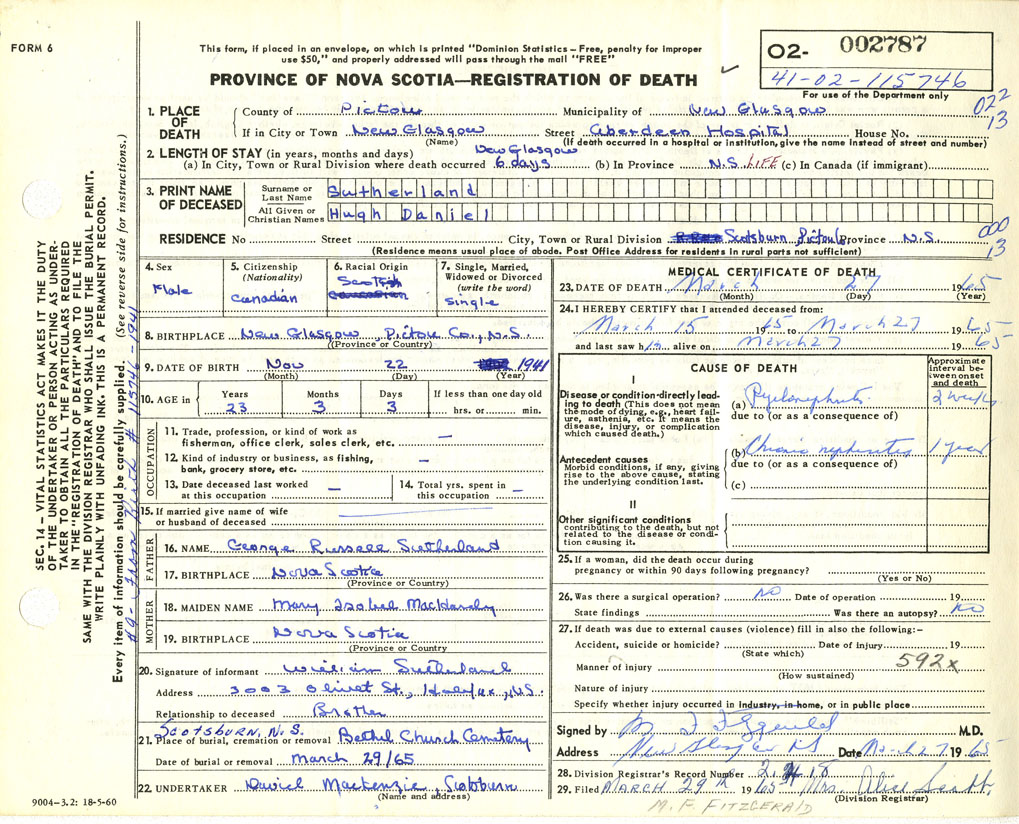 FORM 6
This form, if placed in an envelope, on which is printed "Dominion Statistics – Free, penalty for improper
use $50," and properly addressed will pass through the mail "FREE"
PROVINCE OF NOVA SCOTIA—REGISTRATION OF DEATH
O2- 002787
41-02-115746
For use of the Department only
022
13
SEC. 14 – VITAL STATISTICS ACT MAKES IT THE DUTY
OF THE UNDERTAKER OR PERSON ACTING AS UNDER-
TAKER TO OBTAIN ALL THE PARTICULARS REQUIRED
IN THE "REGISTRATION OF DEATH" AND TO FILE THE
SAME WITH THE DIVISION REGISTRAR WHO SHALL ISSUE THE BURIAL PERMIT.
WRITE PLAINLY WITH UNFADING INK. THIS IS A PERMANENT RECORD.
Every item of information should be carefully supplied. (See reverse side for instructions.)
#9 - From Birth # 115746 - 1941
1. PLACE OF DEATH County of Pictou Municipality of New Glasgow
If in City or Town New Glasgow Street Aberdeen Hospital House No.
(Name) (If death occurred in a hospital or institution, give the name instead of street and number)
2. LENGTH OF STAY (in years, months and days) New Glasgow
(a) In City, Town or Rural Division where death occurred 6 days (b) In Province N.S. LIFE (c) In Canada (if immigrant)
3. PRINT NAME OF DECEASED Surname or Last Name Sutherland
All Given or Christian Names Hugh Daniel
000
13
RESIDENCE No Street City, Town or Rural Division Scotsburn Pictou Province N.S.
(Residence means usual place of abode. Post Office Address for residents in rural parts not sufficient)
4. Sex Male
5. Citizenship (Nationality) Canadian
6. Racial Origin Scottish
7. Single, Married, Widowed or Divorced (write the word) Single
8. BIRTHPLACE New Glasgow, Pictou Co., N.S.
(Province or Country)
9. DATE OF BIRTH Nov 22 1941
(Month) (Day) (Year)
10. AGE in Years Months Days If less than one day old
23 3 3 hrs. or min.
OCCUPATION
11. Trade, profession, or kind of work as fisherman, office clerk, sales clerk, etc. —
12. Kind of industry or business, as fishing, bank, grocery store, etc. —
13. Date deceased last worked at this occupation —
14. Total yrs. spent in this occupation —
15. If married give name of wife or husband of deceased
FATHER
16. NAME George Russell Sutherland
17. BIRTHPLACE Nova Scotia
(Province or Country)
MOTHER
18. MAIDEN NAME Mary Isobel
19. BIRTHPLACE Nova Scotia
(Province or Country
20. Signature of informant William Sutherland
Address 3003 Olivet St., Halifax, N.S.
Relationship to deceased Brother
Scotsburn, N.S.
21. Place of burial, cremation or removal Bethel Church Cemetery
Date of burial or removal March 29/65
22. UNDERTAKER David MacKenzie, Scotsburn
(Name and address)
9004-3.2: 18-5-60
MEDICAL CERTIFICATE OF DEATH
23. DATE OF DEATH March 27 1965
(Month) (Day) (Year)
24. I HEREBY CERTIFY that I attended deceased from:
March 15 65 to March 27 1965
and last saw him alive on March 27 1965
CAUSE OF DEATH
Approximate interval between onset and death
I
Disease or condition directly leading to death (This does not mean the mode of dying, e.g., heart failure, asthenia, etc. It means the disease, injury, or complication which caused death.)
(a) Pyelonephritis 2 weeks
due to (or as a consequence of)
Antecedent causes
Morbid conditions, if any, giving rise to the above cause, stating the underlying condition last.
(b) Chronic nephritis 1 year
due to (or as a consequence of)
(c)
II
Other significant conditions
contributing to the death, but not related to the disease or condition causing it.
25. If a woman, did the death occur during
pregnancy or within 90 days following pregnancy?
(Yes or No)
26. Was there a surgical operation? NO Date of operation 19
State findings Was there an autopsy? No
27. If death was due to external causes (violence) fill in also the following:–
Accident, suicide or homicide? Date of injury 19
(State which)
592x
Manner of injury
(How sustained)
Nature of injury
Specify whether injury occurred in industry, in home, or in public place
Signed by M F Fitzgerald M.D.
Address New Glasgow NS Date March 27 1965
28. Division Registrar's Record Number
29. Filed MARCH 29th 1965 Mrs. Alice Scott
(Division Registrar)
M. F. FITZGERALD